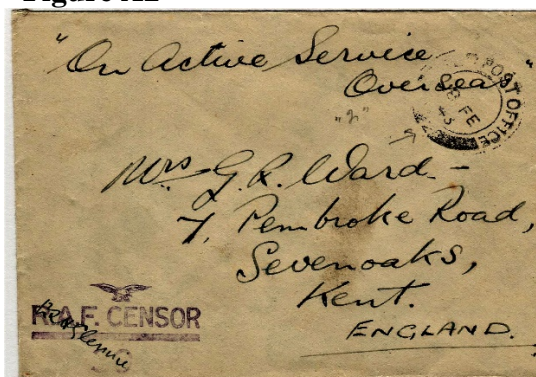 "On Active Service
Overseas"
POST OFFICE
8 FE
43
"n"
Mrs G. R. Ward -
7, Pembroke Road,
Sevenoaks,
Kent.
ENGLAND.
R.A.F. CENSOR